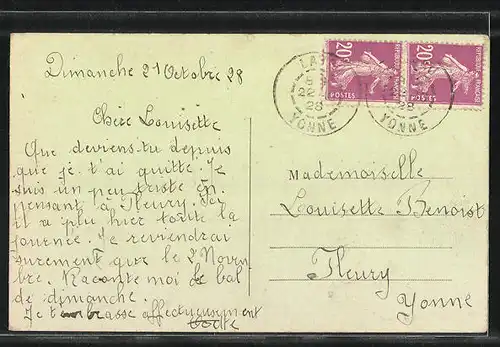 Dimanche 21 Octobre 28
Chère Louisette
Que deviens-tu depuis
que je t'ai quitté. Je
suis un peu triste en
pensant à Fleury. Ici
il a plu hier toute la
journée. Je reviendrai
surement que le 2 Novem
bre. Raconte moi le bal
de dimanche.
Je t'embrasse affectueusement
20c 20c
POSTES POSTES
22
28
YONNE YONNE
Mademoiselle
Louisette Benoist
Fleury
Yonne